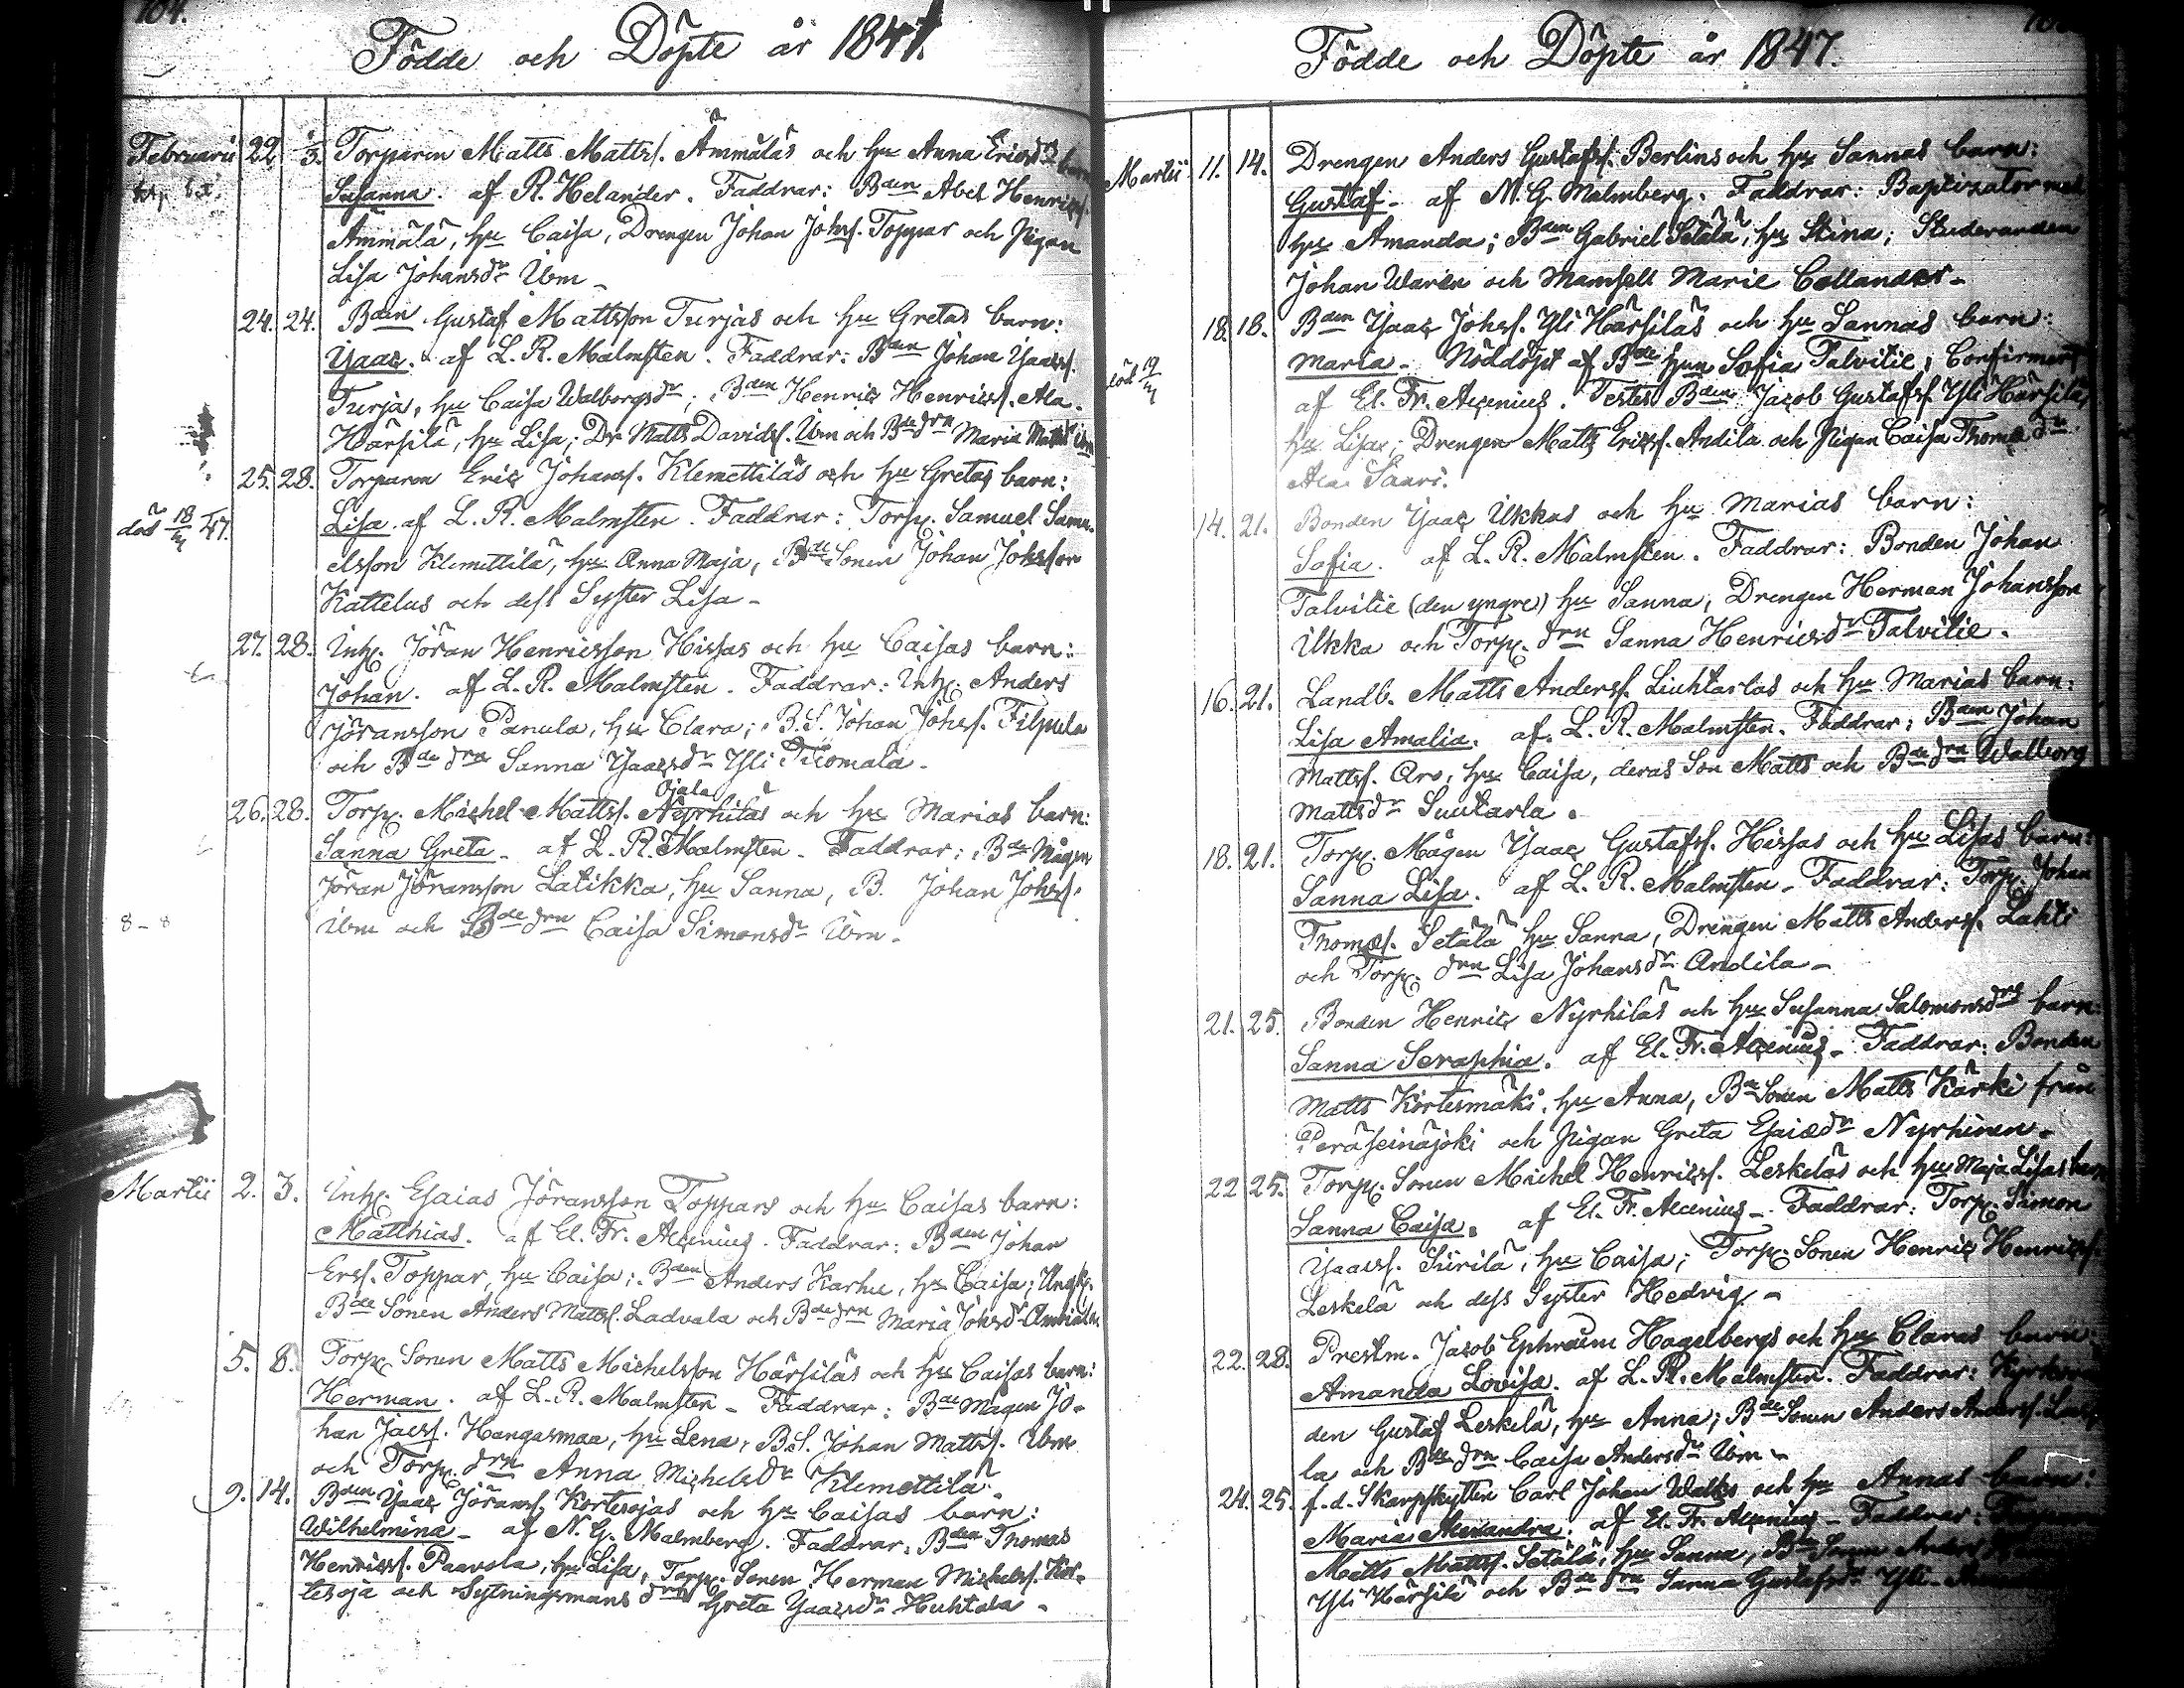 104.
Födde och Döpte år 1847.
Februarii 22 1/3. Torparen Matts Mattss. Ämmäläs och hu Anna Ericsdrs barn
Susanna. af R. Helander. Faddrar: Bden Abel Henricss.
Ämmälä, hu Caisa, Drengen Johan Johss. Toppar och Pigan
Lisa Johansdr Ibm _
24. 24. Bden Gustaf Mattsson Turjas och hu Gretas barn:
Isaac. af L. R. Malmsten. Faddrar: Bden Johan Isaacss.
Turja, hu Caisa Walborgsdr; Bden Henric Henricss. Ala-
Härsilä, hu Lisa; Dr Matts Davidss. Ibm och Bde drn Maria Mattsdr Ibm
25. 28. Torparen Eric Johanss. Klemettiläs och hu Gretas barn:
död 18/ 47. Lisa. af L. R. Malmsten. Faddrar: Torp. Samuel Samu-
elsson Klemettilä, hu Anna Maja, Bde Sonen Johan Johsson
Kattelus och dess Syster Lisa -
27. 28. Inh. Jöran Henricsson Hissas och hu Caisas barn:
Johan. af L. R. Malmsten. Faddrar: Inh. Anders
Jöransson Panula, hu Clara; B. S. Johan Johss. Filpula
och Bde drn Sanna Isaacsdr Yli Tuomala.
Ojala
26. 28. Torp. Michel Mattss. Nyrhiläs och hu Marias barn:
Sanna Greta - af L. R. Malmsten - Faddrar: Bde Mågen
Jöran Jöransson Latikka, hu Sanna, B. Johan Johss.
8 - 8 Ibm och Bde drn Caisa Simonsdr Ibm.
Martii 2. 3. Inh. Esaias Jöransson Toppars och hu Caisas barn:
Matthias. af El. Fr. Alcenius. Faddrar: Bden Johan
Erss. Toppar, hu Caisa; Bden Anders Karhu, hu Caisa; Ungk.
Bde Sonen Anders Mattss. Ladvala och Bde drn Maria Johsdr
5. 8. Torp. Sonen Matts Michelsson Härsiläs och hu Caisas barn:
Herman. af L. R. Malmsten - Faddrar: Bde Mågen Jo-
han Jacss. Hangasmaa, hu Lena, B. S. Johan Mattss. Ibm
och Torp. drn Anna Michelsdr Klemettilä.
9. 14. Bden Isaac Jöranss. Kortesojas och hu Caisas barn:
Wilhelmina - af N. G. Malmberg. Faddrar: Bden Thomas
Henricss. Paavola, hu Lisa, Torp. Sonen Herman Michelss. Kor-
tesoja och Sytningsmans drn Greta Isaacsdr Huhtala -
Födde och Döpte år 1847.
Martii 11. 14. Drengen Anders Gustafss. Berlins och hu Sannas barn:
Gustaf - af N. G. Malmberg. Faddrar: Baptizator med
hu Amanda; Bden Gabriel Setälä, hu Stina; Studeranden
Johan Waren och Mamsell Marie Callander -
18. 18. Bden Isaac Johss. Yli Härsiläs och hu Sannas barn:
död 19/ Maria - Nöddöpt af Bde hun Sofia Talvitie; Confirmert
af El. Fr. Alcenius. Testes Bden Jacob Gustafss. Yli Härsilä,
hu Lisa; Drengen Matts Ericss. Andila och Pigan Caisa Thomædr
Ala Saari.
14. 21. Bonden Isaac Ukkas och hu Marias barn:
Sofia. af L. R. Malmsten. Faddrar: Bonden Johan
Talvitie (den yngre) hu Sanna, Drengen Herman Johansson
Ukka och Torp. drn Sanna Henricsdr Talvitie.
16. 21. Landb. Matts Anderss. Liuhtarlas och hu Marias barn:
Lisa Amalia. af L. R. Malmsten. Faddrar: Bden Johan
Mattss. Aro, hu Caisa, deras Son Matts och Bde drn Walborg
Mattsdr Luutarla.
18. 21. Torp. Mågen Isaac Gustafss. Hissas och hu Lisas barn:
Sanna Lisa. af L. R. Malmsten - Faddrar: Torp. Johan
Thomæs. Setälä hu Sanna, Drengen Matts Anderss. Lahti
och Torp. drn Lisa Johansdr Andila -
21. 25. Bonden Henric Nyrhiläs och hu Susanna Salomonsdrs barn:
Sanna Seraphia. af El. Fr. Alcenius - Faddrar: Bonden
Matts Kortesmäki, hu Anna, Bde Sonen Matts Kärki från
Peräseinäjoki och Pigan Greta Esaiædr Nyrhinen -
22 25. Torp. Sonen Michel Henricss. Leskeläs och hu Maja Lisas barn
Sanna Caisa. af El. Fr. Alcenius - Faddrar: Torp. Simon
Isaacss. Siirilä, hu Caisa; Torp. Sonen Henric Henricss.
Leskelä och dess Syster Hedvig -
22. 28. Prestm. Jacob Ephraim Hagelbergs och hu Claras barn
Amanda Lovisa. af L. R. Malmsten. Faddrar:
den Gustaf Leskelä, hu Anna; Bde Sonen Anders Anderss.
la och Bde drn Caisa Andersdr Ibm -
24. 25. f. d. Skarpskytten Carl Johan Walks och hu Annas barn:
Maria Alexandra: af El. Fr. Alcenius - Faddrar:
Matts Mattss. Setälä, hu Sanna, Bde Sonen Anders
Yli Härsilä och Bde drn Sanna Gustafsdr Yli